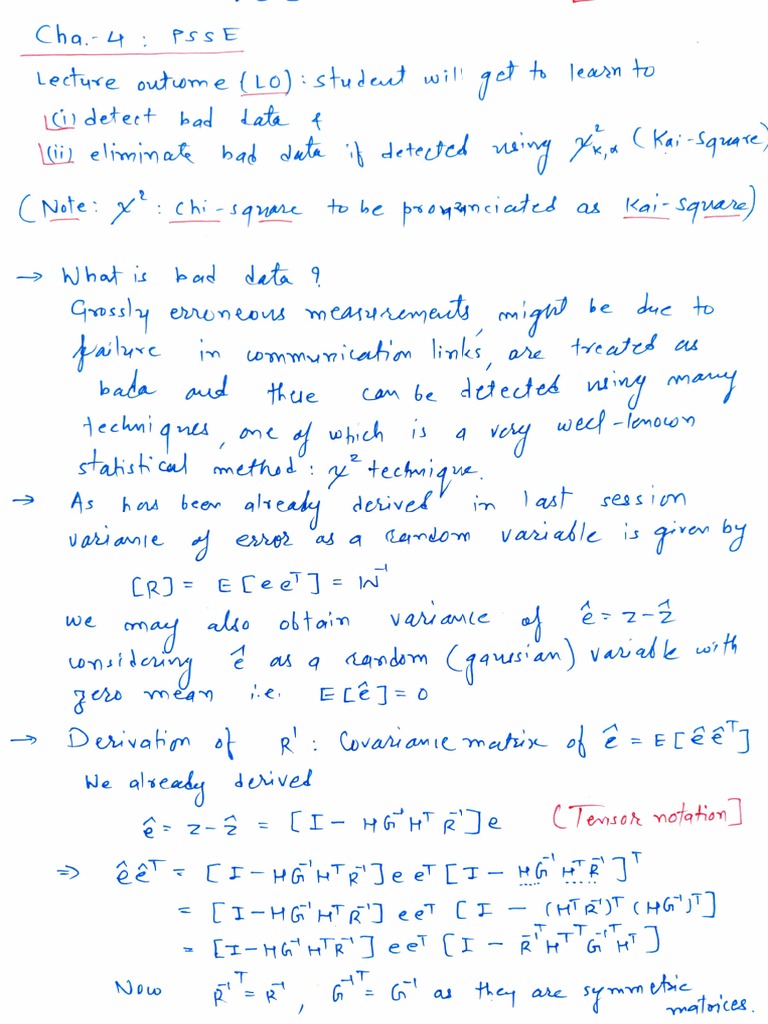 Cha.-4 : PSSE
Lecture outcome (LO) : student will get to learn to
(i) detect bad data &
(ii) eliminate bad data if detected using χ²ₖ,α (Kai-Square)
(Note: χ² : Chi-square to be pronounciated as Kai-Square)
→ What is bad data ?
Grossly erroneous measurements, might be due to
failure in communication links, are treated as
bada and these can be detected using many
techniques, one of which is a very well-known
statistical method : χ² technique.
→ As has been already derived in last session
variance of error as a random variable is given by
[R] = E[eeᵀ] = W⁻¹
we may also obtain variance of ê = z-ẑ
considering ê as a random (gaussian) variable with
zero mean i.e. E[ê] = 0
→ Derivation of R' : Covariance matrix of ê = E[êêᵀ]
We already derived
ê = z-ẑ = [I - HG⁻¹Hᵀ R⁻¹]e (Tensor notation]
⇒ êêᵀ = [I-HG⁻¹HᵀR⁻¹]e eᵀ[I - HG⁻¹ HᵀR⁻¹]ᵀ
= [I-HG⁻¹HᵀR⁻¹] eeᵀ [I - (HᵀR⁻¹)ᵀ (HG⁻¹)ᵀ]
= [I-HG⁻¹HᵀR⁻¹] eeᵀ [I - R⁻¹ᵀHᵀᵀG⁻¹ᵀHᵀ]
Now R⁻¹ᵀ = R⁻¹, G⁻¹ᵀ = G⁻¹ as they are symmetric
matrices.